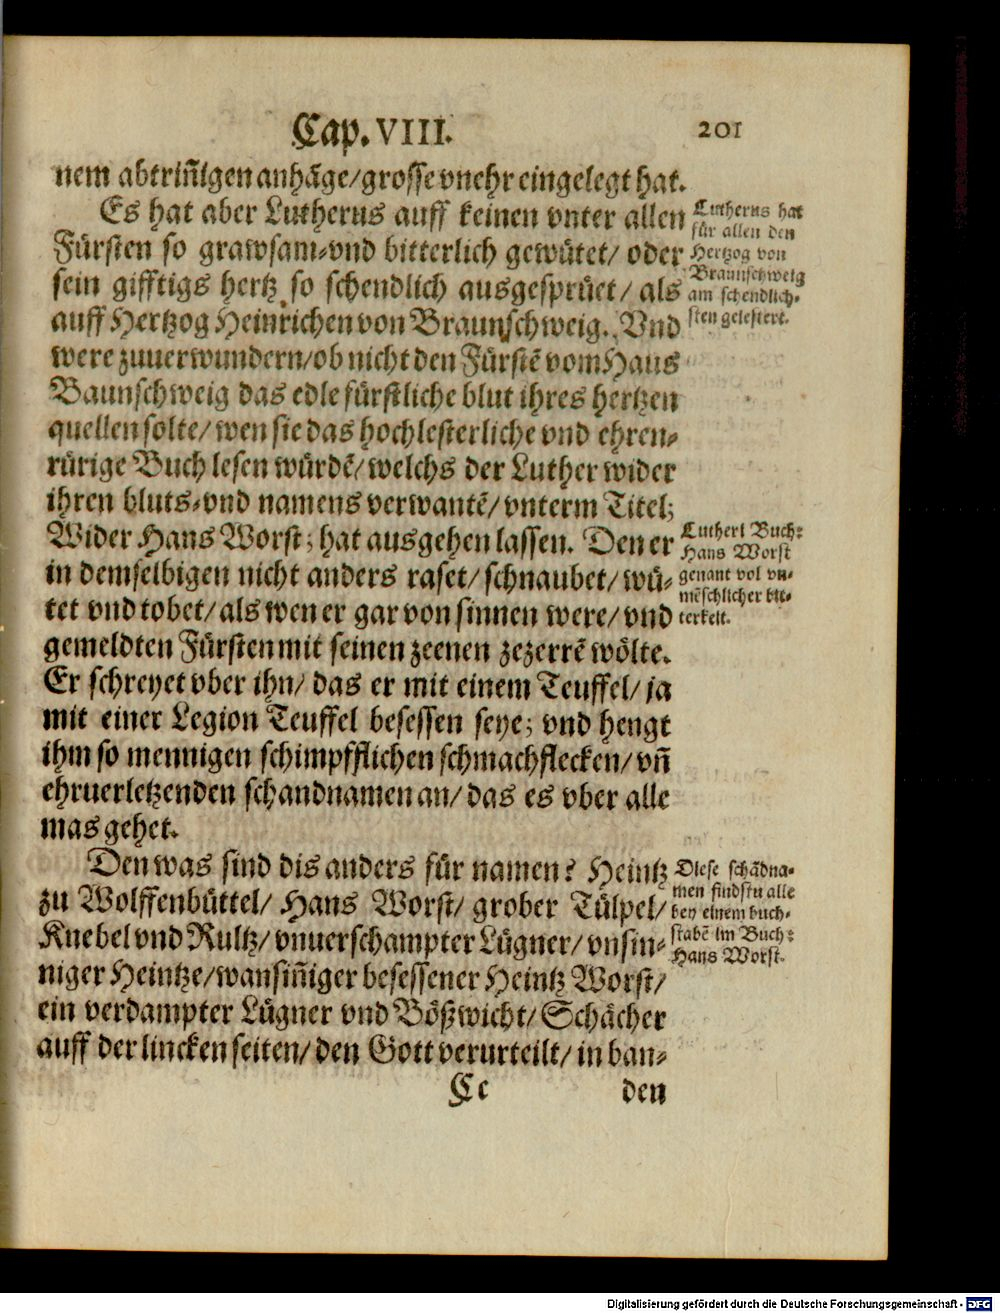 Cap. VIII. 201
nem abtriñigen anhãge/grosse vnehr eingelegt hat.
Es hat aber Lutherus auff keinen vnter allen
Fürsten so grawsam-vnd bitterlich gewütet/ oder
sein gifftigs hertz so schendlich ausgesprüet/ als
auff Hertzog Heinrichen von Braunschweig. Vnd
were zuuerwundern/ob nicht den Fürstẽ vom Haus
Baunschweig das edle fürstliche blut ihres hertzen
quellen solte/wen sie das hochlesterliche vnd ehren-
rürige Buch lesen würdẽ/welchs der Luther wider
ihren bluts-vnd namens verwantẽ/vnterm Titel;
Wider Hans Worst; hat ausgehen lassen. Den er
in demselbigen nicht anders raset/schnaubet/wü-
tet vnd tobet/als wen er gar von sinnen were/vnd
gemeldten Fürsten mit seinen zeenen zezerrẽ wölte.
Er schreyet vber ihn/ das er mit einem Teuffel/ ja
mit einer Legion Teuffel besessen seye; vnd hengt
ihm so mennigen schimpfflichen schmachflecken/vñ
ehruerletzenden schandnamen an/das es vber alle
mas gehet.
Den was sind dis anders für namen? Heintz
zu Wolffenbüttel/ Hans Worst/ grober Tülpel/
Knebel vnd Rultz/vnuerschampter Lügner/vnsin-
niger Heintze/wansiñiger besessener Heintz Worst/
ein verdampter Lügner vnd Bößwicht/Schächer
auff der lincken seiten/den Gott verurteilt/in ban-
Cc den
Lutherus hat
für allen den
Hertzog von
Braunschweig
am schendlich-
sten gelestert.
Lutheri Buch:
Hans Worst
genant vol vn-
mẽschlicher bit-
terkeit.
Diese schãdna-
men findstu alle
bey einem buch-
stabẽ im Buch:
Hans Worst.
Digitalisierung gefördert durch die Deutsche Forschungsgemeinschaft - DFG